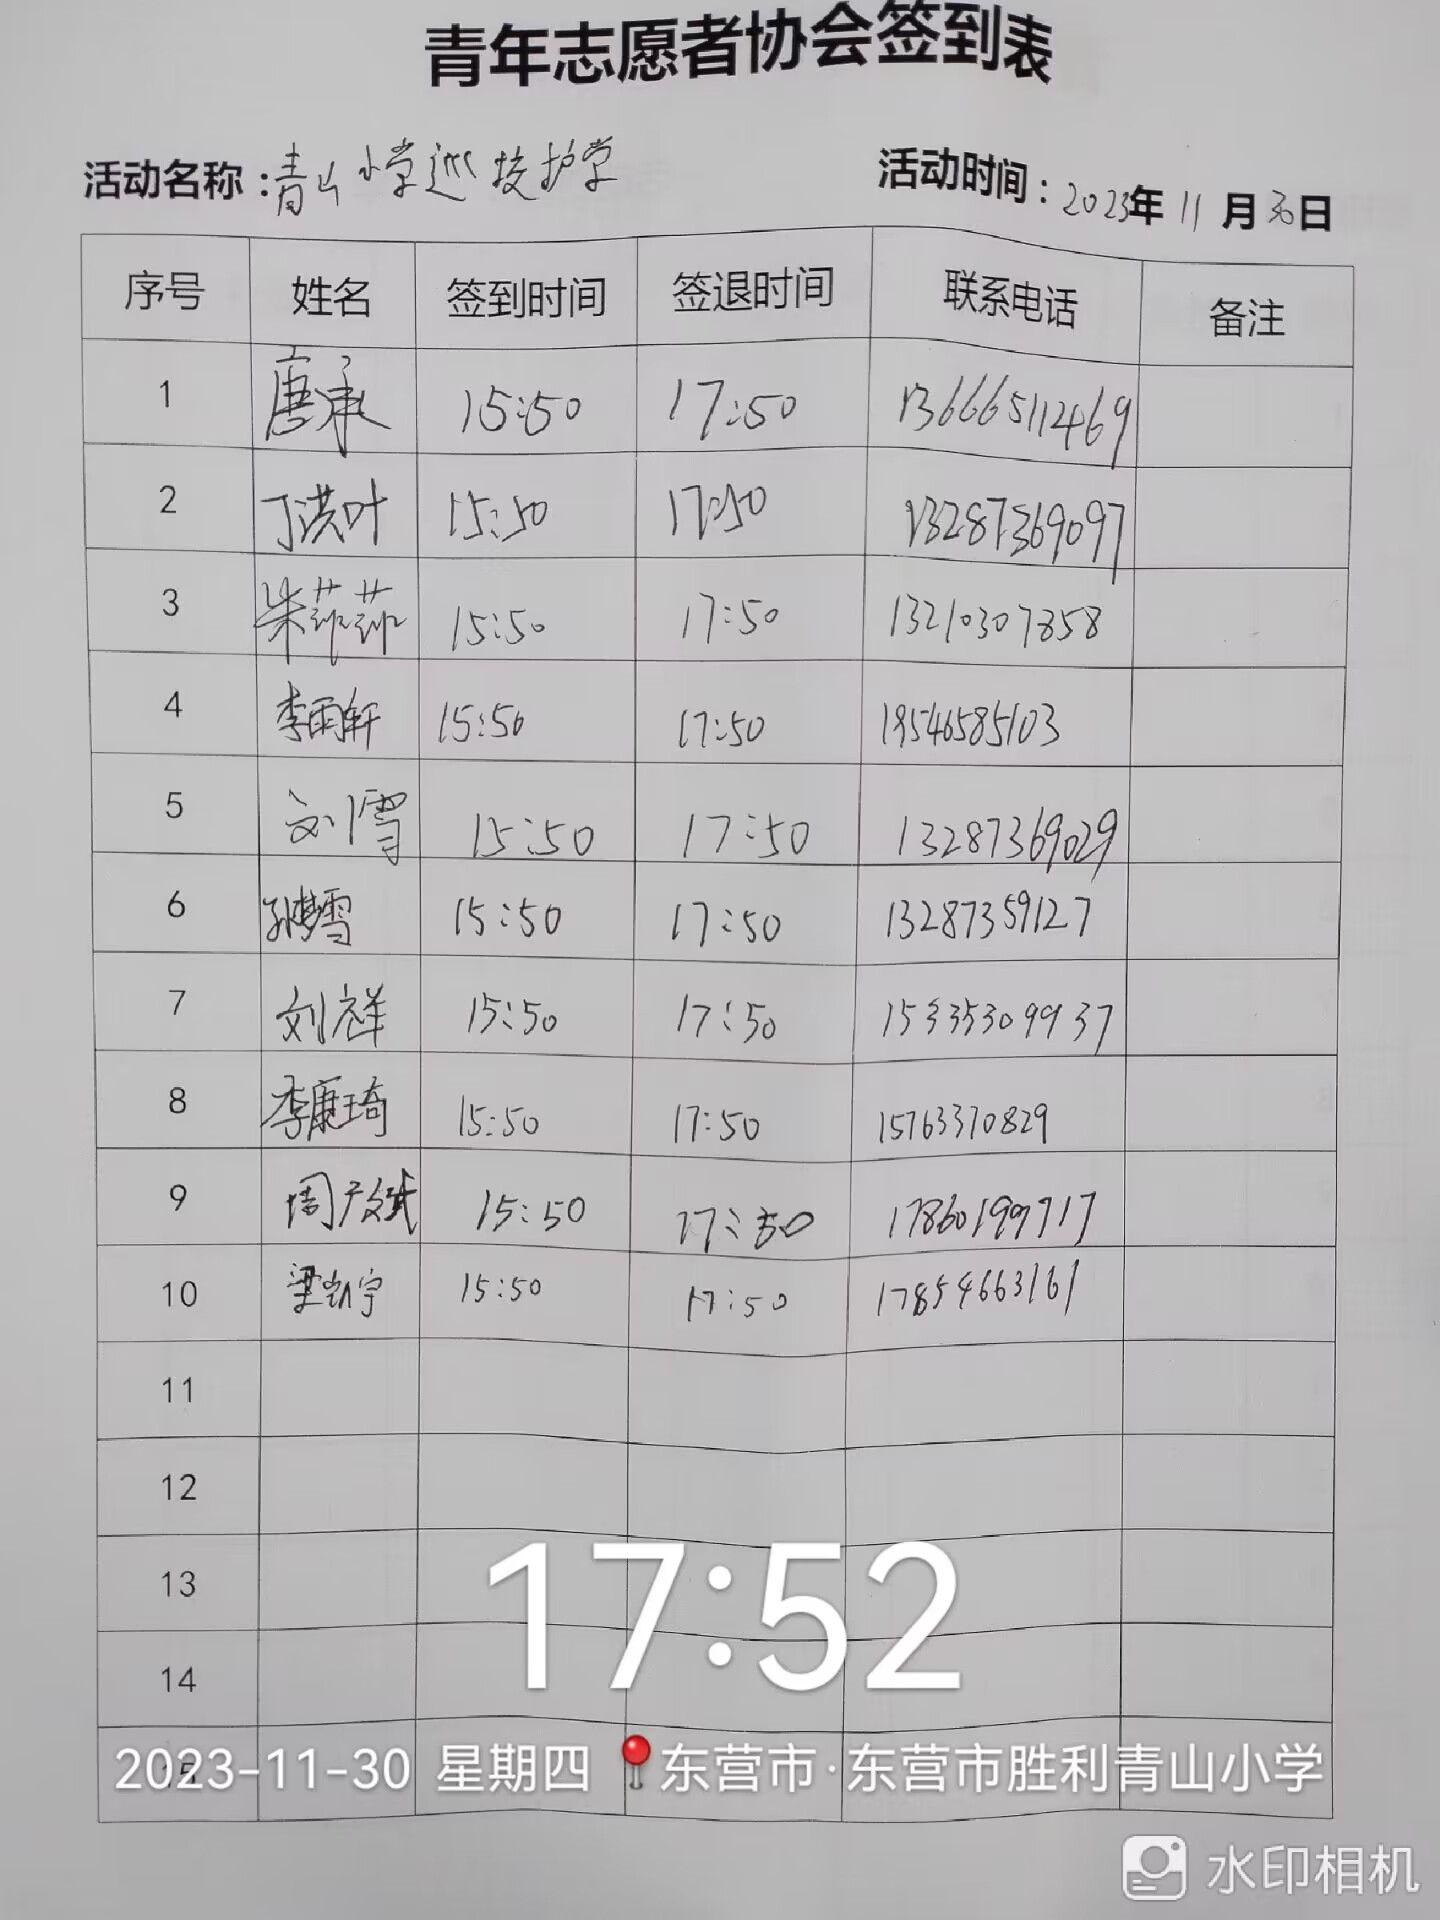 青年志愿者协会签到表
活动名称：青山小学巡校护学 活动时间：2023年11月30日
序号 姓名 签到时间 签退时间 联系电话 备注
1 唐承 15:50 17:50 13666511469
2 丁洪叶 15:50 17:50 13287369097
3 朱菲菲 15:50 17:50 13210307858
4 李雨轩 15:50 17:50 19546585103
5 刘雪 15:50 17:50 13287369029
6 孙梦雪 15:50 17:50 13287359127
7 刘祥 15:50 17:50 15335309937
8 李康琦 15:50 17:50 15763370829
9 周广斌 15:50 17:50 17860199717
10 梁凯宇 15:50 17:50 17854663161
11
12
13
17:52
14
15
2023-11-30 星期四 东营市·东营市胜利青山小学
水印相机